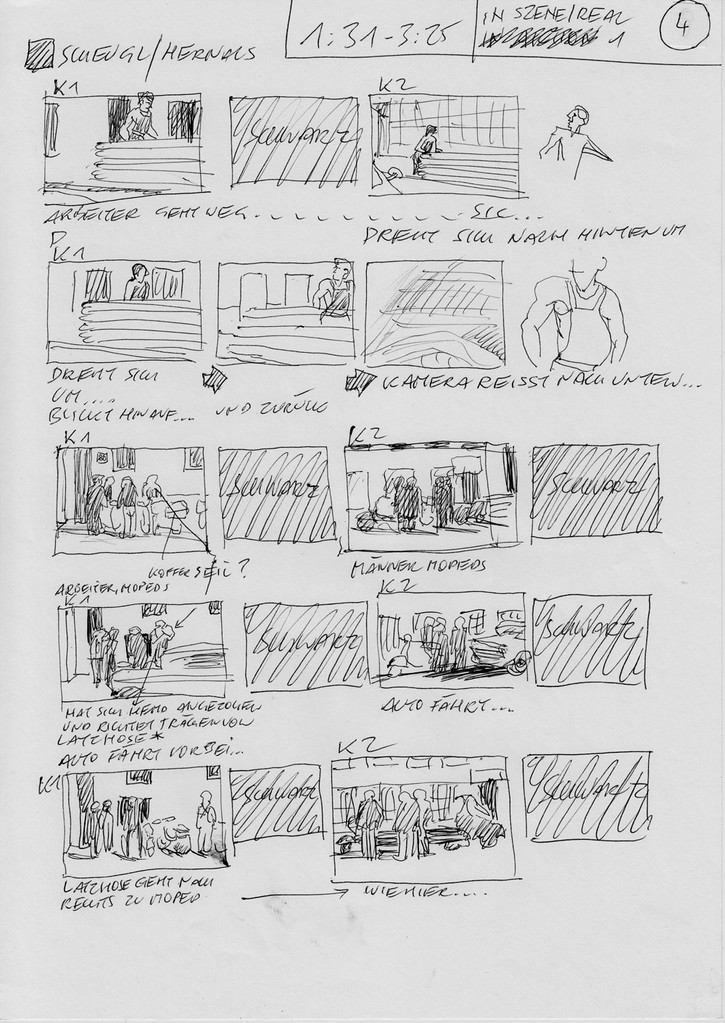 SCHEUGL/HERNALS
1:31-3:25
IN SZENE/REAL
1
4
K1
SCHWARTZ
K2
ARBEITER GEHT WEG - - - - - - - SIC...
DREHT SICH NACH HINTEN UM
K1
DREHT SICH
UM....
BLICKT HINAUF... UND ZURÜCK
KAMERA REISST NACH UNTEN...
K1
SCHWARTZ
K2
SCHWARTZ
KOFFER SEIL?
ARBEITER, MOPEDS
MÄNNER MOPEDS
K1
SCHWARTZ
K2
SCHWARTZ
HAT SICH HEMD ANGEZOGEN
UND RICHTET TRÄGER VON
LATZHOSE*
AUTO FÄHRT VORBEI...
AUTO FÄHRT....
K1
SCHWARTZ
K2
SCHWARTZ
LATZHOSE GEHT NACH
RECHTS ZU MOPED
WIE HIER....